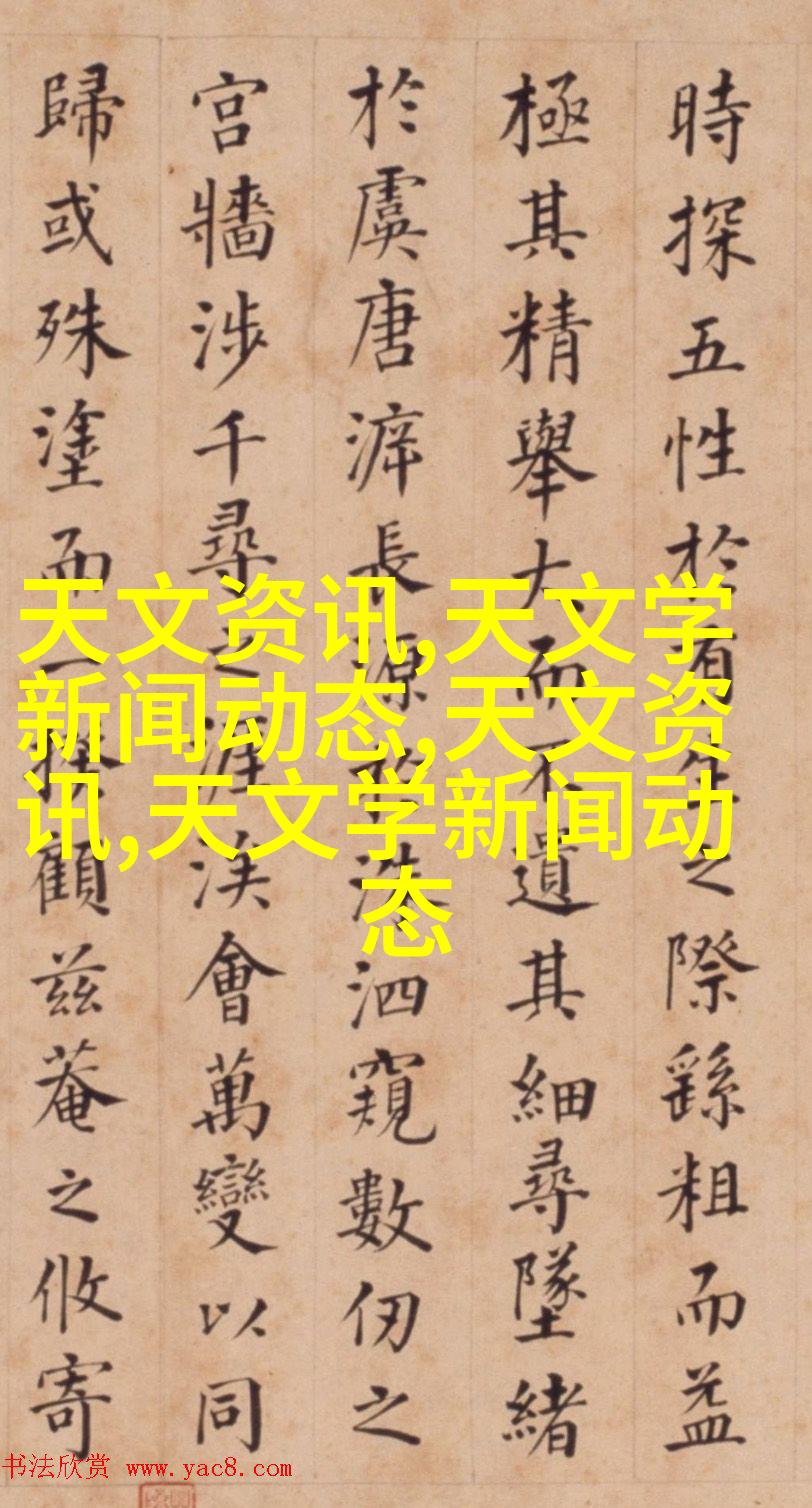 時探五性於有生之際繇粗而益
極其精舉大而不遺其細尋墜緒
於虞唐泝長源於洙泗窺數仞之
宮牆涉千尋之涯涘會萬變以同
歸或殊塗而一揆顧茲菴之攸寄
天文资讯,天文学
新闻动态,天文资
讯,天文学新闻动
态
书法欣赏 www.yac8.com